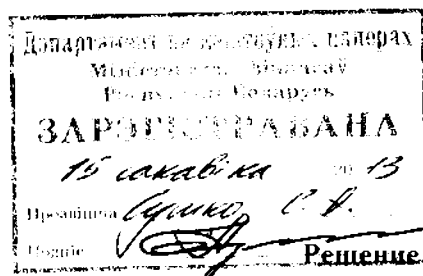 Дэпартамент па каштоўных паперах
Міністэрства фінансаў
Рэспублікі Беларусь
ЗАРЭГІСТРАВАНА
15 сакавіка 2013
Прозвішча Сушко С. А.
Подпіс
Решение